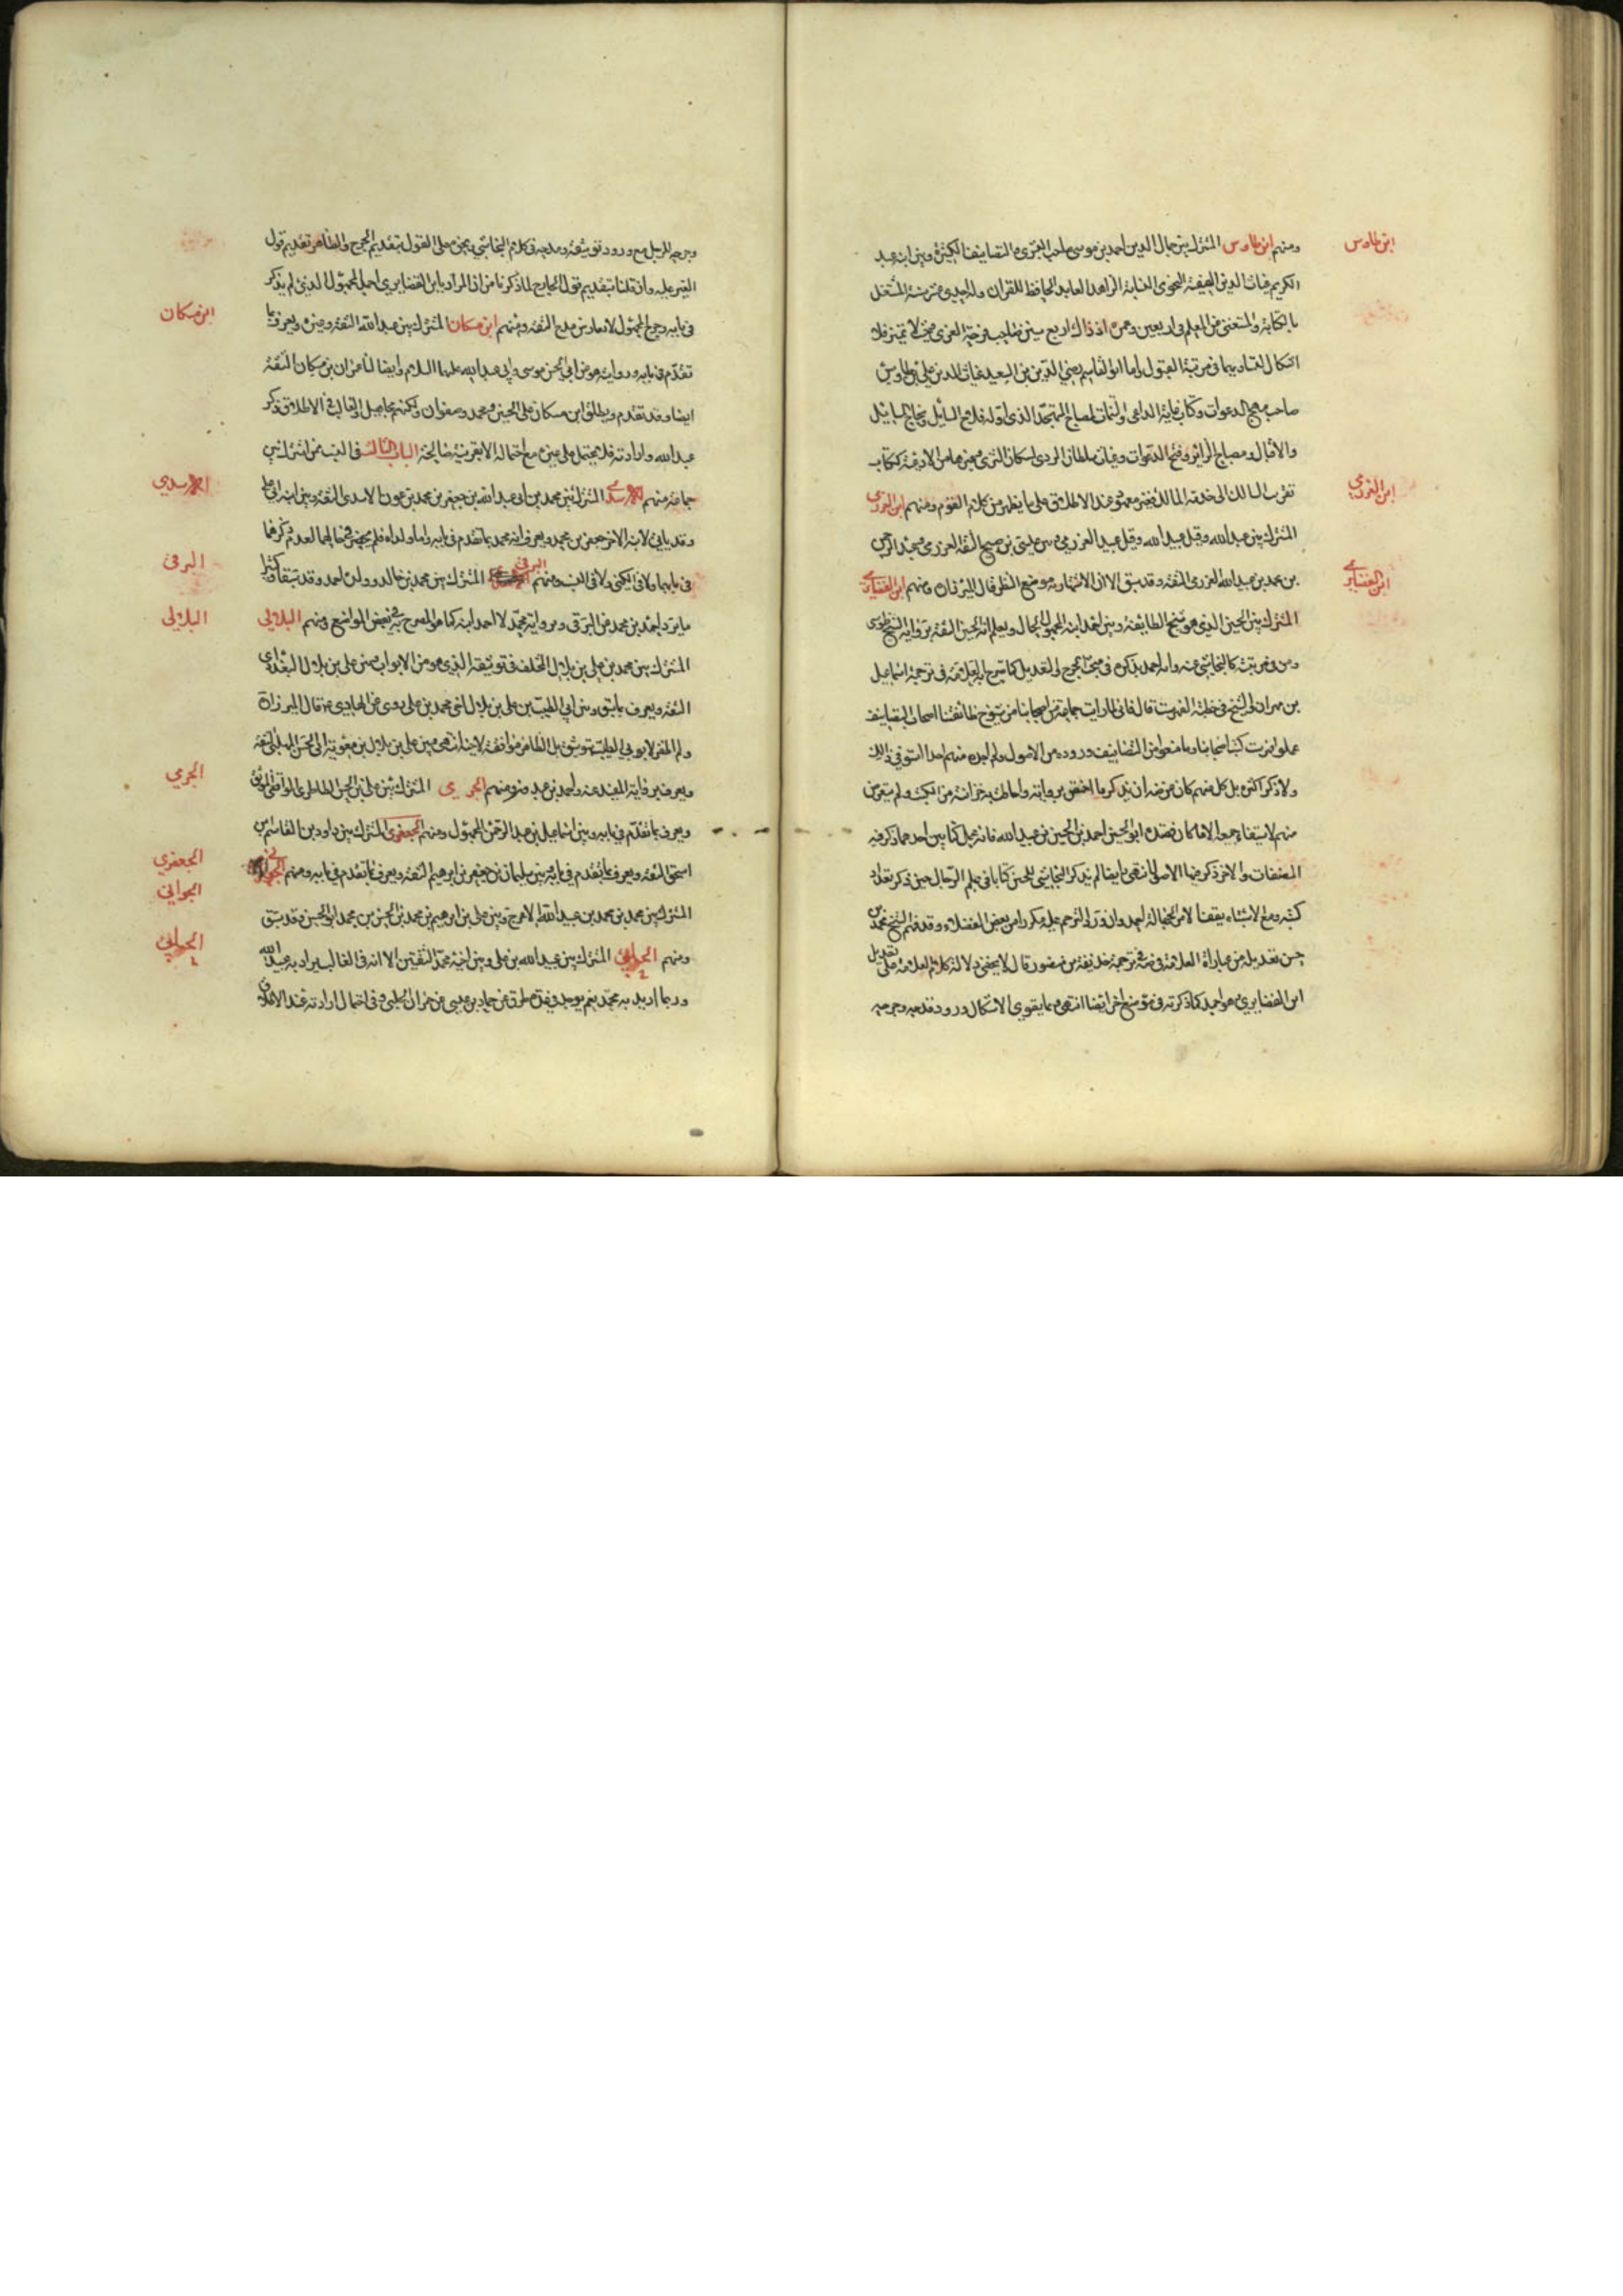 ابن طاوس
ومنهم ابن طاوس المشترك بين جمال الدين احمد بن موسى صاحب البشرى والتصانيف الكثيرة وبين ابنه عبد
الكريم غياث الدين الفقيه النحوي النسابة الزاهد العابد الحافظ للقران وله اجدى عشر سنة اشتغل
بالكتابة واستغنى عن المعلم في اربعين وعمره اذ ذاك اربع سنين صاحب فرحة الغرى حتى لا تميز فلا
اشكال لتقاربهما في مرتبة القبول واما ابو القاسم رضي الدين بن السعيد غياث الدين علي بن طاوس
صاحب مهج الدعوات وكتاب غاية الداعي والتتمات لمصباح المتهجد الذي اوله فلاح السائل ونجاح السائل
والاقبال ومصباح الزائر وفتح الدعوات وغياث سلطان الورى لسكان الثرى وغيرها من الادعية ككتاب
ابن العزرمي
تقرب السالك الى خدمة المالك فغير معهود عند الاطلاق على ما يظهر من كلام القوم ومنهم ابن العزرمي
المشترك بين عبد الله وقيل عبيد الله وقيل عبيد العزرمي وبين عيسى بن صبيح الثقة العرزمي وعبد الرحمن
ابن الغضايري
بن محمد بن عبيد الله العزرمي الثقة وقد سبق الا ان الاشتهار به موضع النظر قال الميرزا ان ومنهم ابن الغضايري
المشترك بين الحسين الذي هو شيخ الطايفة وبين احمد ابنه المجهول الحال ويعلم انه الحسين الثقة برواية الشيخ الطوسي
ومن في مرتبته كالنجاشي عنه وانه احمد بذكره في مبحث الجرح والتعديل كما صرح به العلامة في ترجمة اسماعيل
بن مهران الشيخ في خطبة الفهرست قال فاني لما رايت جماعة من اصحابنا من شيوخ طائفتنا اصحاب التصانيف
عملوا فهرست كتب اصحابنا وما صنفوا من التصانيف ورووه من الاصول ولم اجد منهم احدا استوفى ذلك
ولا ذكر اكثره بل كل منهم كان غرضه ان يذكر ما اختص بروايته واحاطت به خزانته من الكتب ولم يتعرض
منهم لاستيفاء جميعه الا ما كان قصده ابو الحسين احمد بن الحسين بن عبيد الله فانه عمل كتابين احدهما ذكر فيه
المصنفات والاخر ذكر فيه الاصول انتهى وايضا لم يذكر النجاشي للحسين كتابا في علم الرجال حين ذكر تعداد
كتبه ومنع الاشتباه يقضا لامر الجهالة احمد وان ورد الترحم عليه مكررا من بعض الفضلاء وقد فهم الشيخ محمد بن
حسن تعديله من عبارة العلامة في ترجمة حذيفة بن منصور قال لا يخفى دلالة كلام العلامة على تعديل
ابن الغضايري وهو احمد كما ذكرته في موضع اخر ايضا انتهى مما يقوي الاشكال ورود قدحه وجرحه
وجرحه للرجل مع ورود توثيقه ومدحه في كلام النجاشي يجزم على القول بتقديم الجرح والظاهر تقديم قول
الغير عليه وان قلنا بتقديم قول الجارح لما ذكرنا من ان المراد بابن الغضايري احمد المجهول الذي لم يذكر
ابن مسكان
في بابه وجرح المجهول لا يعارض مدح الثقة ومنهم ابن مسكان المشترك بين عبد الله الثقة وغيره ويعرف بما
تقدم في بابه وروايته هو عن ابي الحسن موسى وابي عبد الله عليهما السلام وايضا لنا عمران بن مسكان الثقة
ايضا وقد تقدم ويطلق ابن مسكان على الحسين ومحمد وصفوان ولكنهم مجاهيل والغالب في الاطلاق ذكر
عبد الله وارادته فلا يحتمل على غيره مع احتماله الا بقرينة صالحة الباب الثالث في النسب ممن اشترك بين
الاسدي
جماعة منهم الاسدي المشترك بين محمد بن ابي عبد الله بن جعفر بن محمد بن عون الاسدي الثقة وبين ابنه ابي علي
وقد ياتي لابنه الاخر جعفر بن محمد ويعرف انه محمد بما تقدم في بابه واما ولداه فلم يحضرني حالهما لعدم ذكرهما
البرقي
في بابهما ولا في الكنى ولا في النسب ومنهم البرقي المشترك بين محمد بن خالد وولده احمد وقد سبقا وكثيرا
البلالي
ما يرد احمد بن محمد عن البرقي وبروايته محمد لا احمد ابنه كما هو المصرح به في بعض المواضع ومنهم البلالي
المشترك بين محمد بن علي بن بلال المختلف في توثيقه الذي هو من الابواب وبين علي بن بلال البغدادي
الثقة ويعرف بما سبق وبين ابي الطيب بن علي بن بلال اخي محمد بن علي روى عن الهادي ع قال الميرزا ره
ولم اظفر لابوي الطيب بتوثيق بل الظاهر موافقة لاخيه انتهى وبين علي بن بلال بن معوية ابي الحسن المهلبي الثقة
الجرمي
ويعرف برواية المفيد عنه واحمد بن عبدون ومنهم الجرمي المشترك بين علي بن الحسن الطاطري الواقفي الموثق
ويعرف بما تقدم في بابه وبين اسماعيل بن عبد الرحمن المجهول ومنهم الجعفري المشترك بين داود بن القاسم بن
الجعفري
اسحق الثقة ويعرف بما تقدم في بابه وبين سليمان بن جعفر بن ابرهيم الثقة ويعرف بما تقدم في بابه ومنهم الجواني
الجواني
المشترك بين محمد بن محمد بن عبيد الله الاعرج وبين علي بن ابراهيم بن محمد بن الحسن بن محمد ابو الحسن وقد سبق
الحلبي
ومنهم الحلبي المشترك بين عبيد الله بن علي وبين اخيه محمد الثقتين الا انه في الغالب يراد به عبيد الله
وربما اريد به محمد نعم يوجد في عدة طرق عن حماد بن عيسى عن عمران الحلبي وفي احتمال ارادته عند الاطلاق